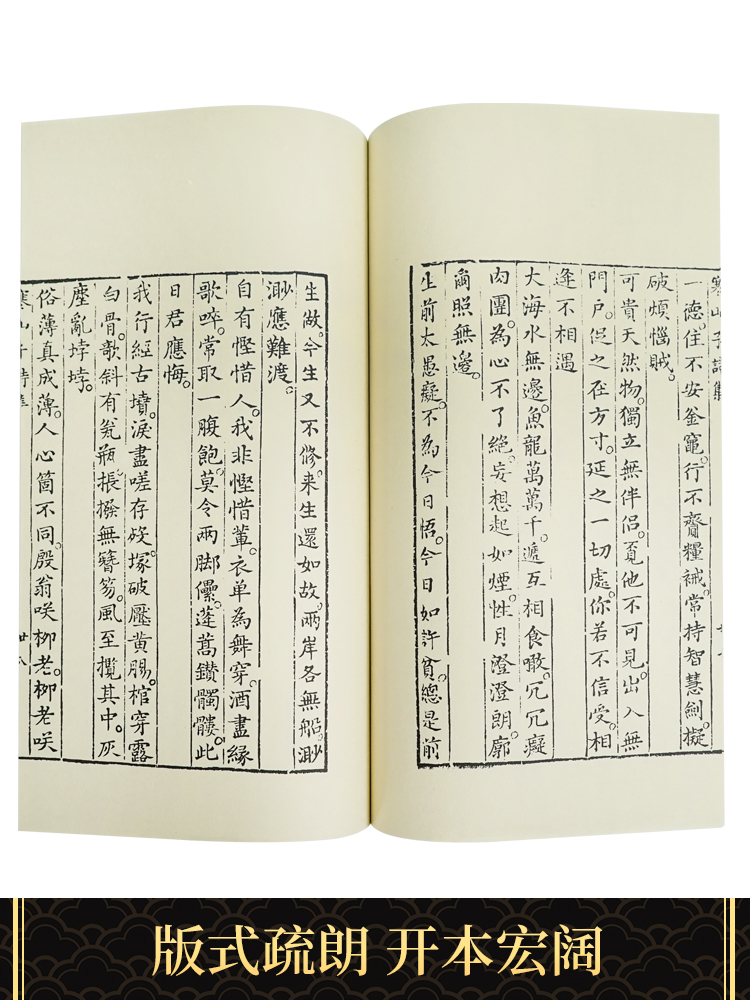 寒山子詩集
一德。住不安釜竈。行不齎糧裓。常持智慧劍。擬
破煩惱賊。
可貴天然物。獨立無伴侶。覔他不可見。出入無
門戶。促之在方寸。延之一切處。你若不信受。相
逢不相遇
大海水無邊。魚龍萬萬千。遞互相食噉。冗冗癡
肉團。為心不了絕。妄想起如煙。性月澄澄朗。廓
爾照無邊。
生前太愚癡。不為今日悟。今日如許貧。總是前
生做。今生又不修。来生還如故。兩岸各無船。渺
渺應難渡。
自有慳惜人。我非慳惜輩。衣单為舞穿。酒盡緣
歌啐。常取一腹飽。莫令兩脚儽。蓬蒿鑚髑髏。此
日君應悔。
我行經古墳。淚盡嗟存歿。塚破壓黄腸。棺穿露
白骨。欹斜有瓮瓶。掁撥無簪笏。風至攬其中。灰
塵亂㘷㘷。
俗薄真成薄。人心箇不同。殷翁咲柳老。柳老咲
寒山子詩集
廿八
版式疏朗 开本宏阔